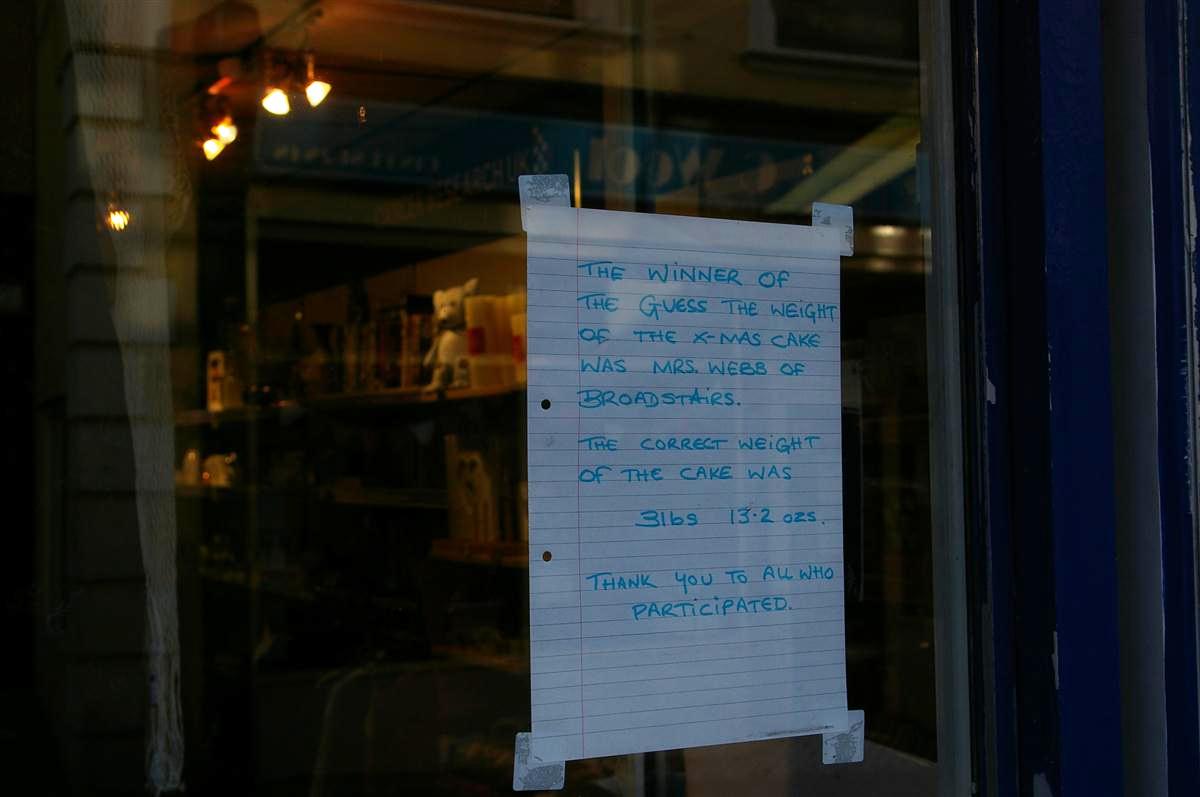 THE WINNER OF
THE GUESS THE WEIGHT
OF THE X-MAS CAKE
WAS MRS. WEBB OF
BROADSTAIRS.
THE CORRECT WEIGHT
OF THE CAKE WAS
3lbs 13.2 ozs.
THANK YOU TO ALL WHO
PARTICIPATED.